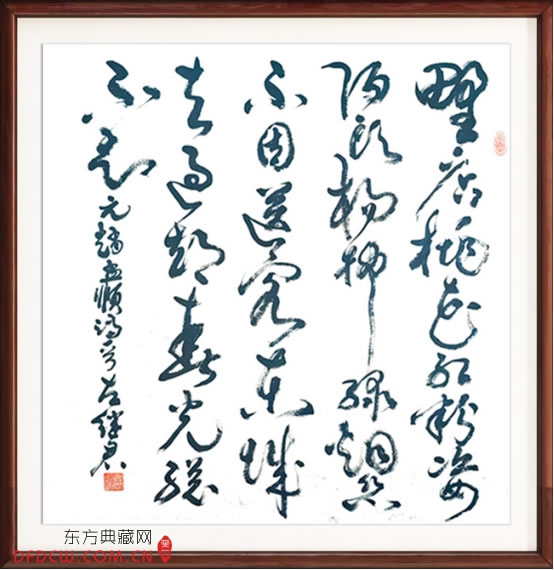 野店桃花红粉姿
陌头杨柳绿烟丝
不因送客东城
去过却春光总
不知
元趙孟頫诗
东方典藏网
DFDCW.COM.CN